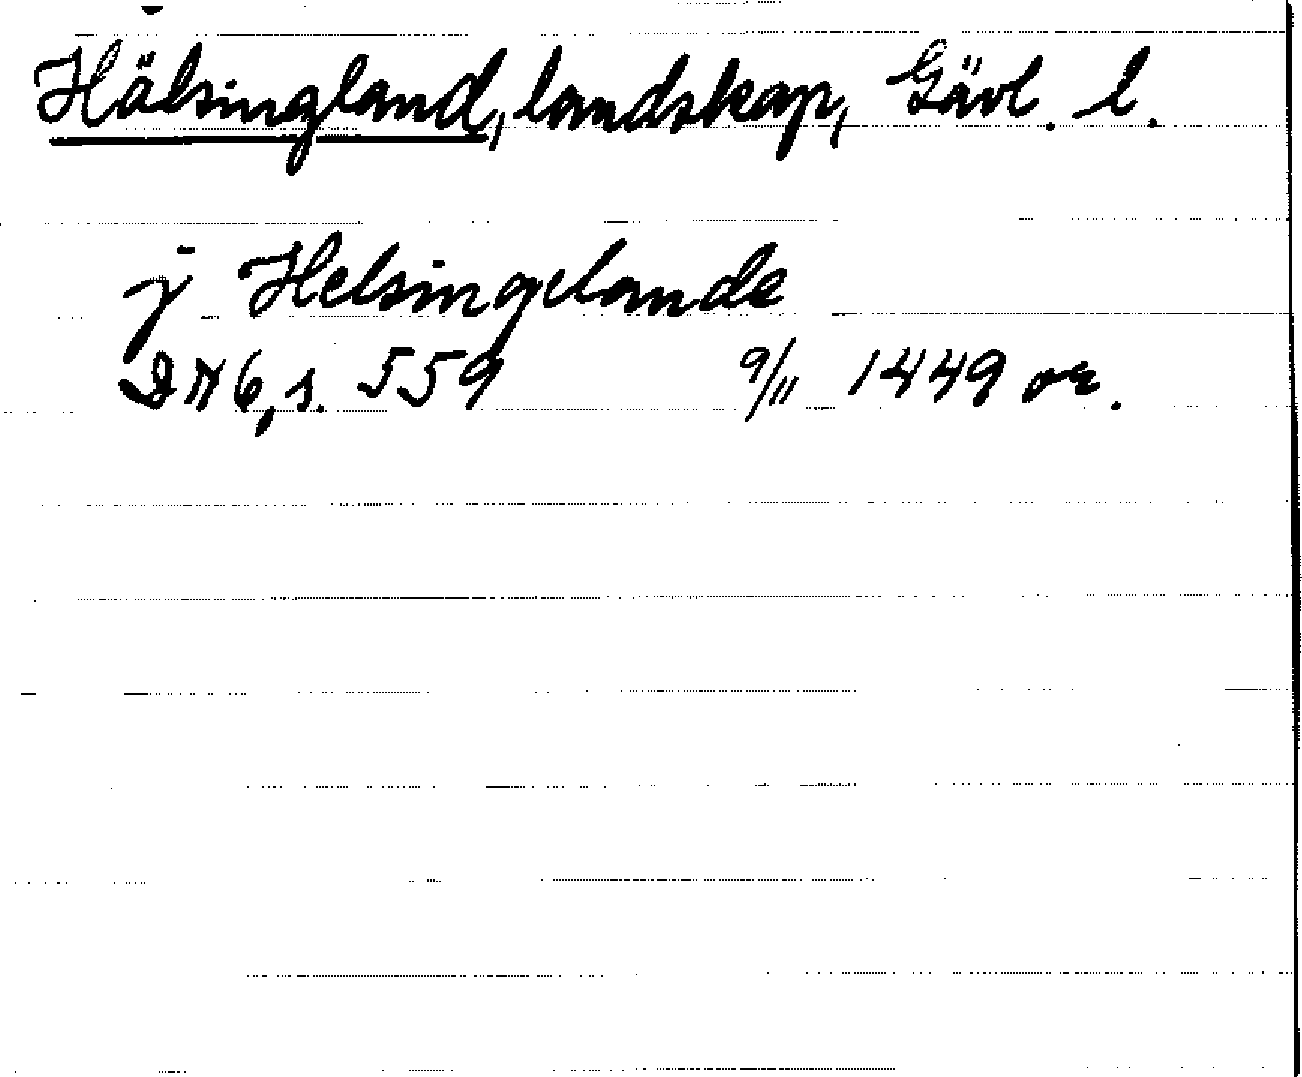 Hälsingland, landskap, Gävl. l.
j Helsingelande
DN 6, s. 559 9/11 1449 or.